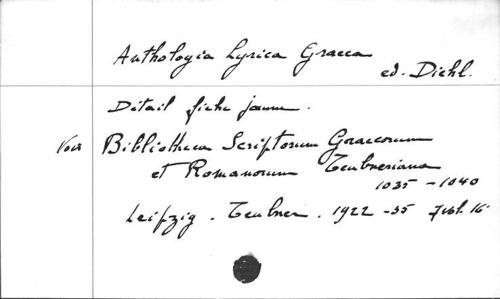 Anthologia Lyrica Graeca
ed. Diehl.
Détail fiche jaune.
Voir Bibliotheca Scriptorum Graecorum
et Romanorum Teubneriana
1035-1040
Leipzig. Teubner. 1922-35 7 vol. 16°